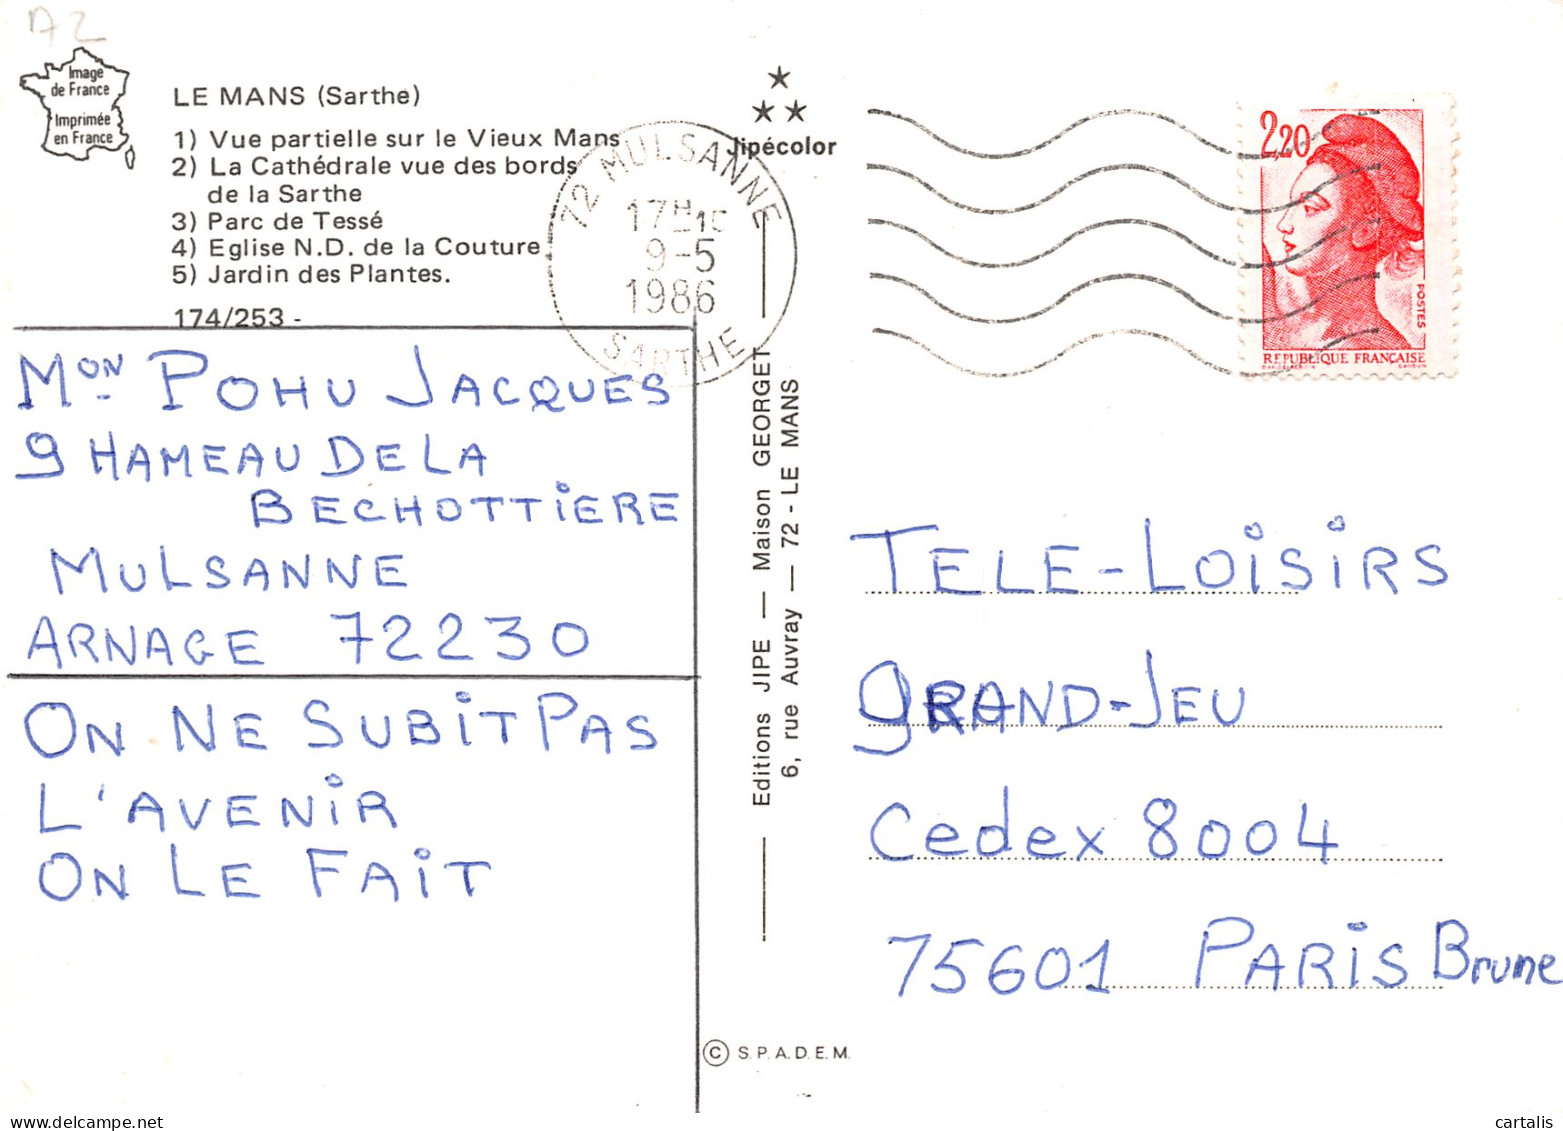 AZ
Image
de France
Imprimée
en France
LE MANS (Sarthe)
1) Vue partielle sur le Vieux Mans
2) La Cathédrale vue des bords
de la Sarthe
3) Parc de Tessé
4) Eglise N.D. de la Couture
5) Jardin des Plantes.
174/253 -
Jipécolor
72 MULSANNE
17H15
9-5
1986
SARTHE
2,20
POSTES
REPUBLIQUE FRANÇAISE
GANDON
MON POHU JACQUES
9 HAMEAU DE LA
BECHOTTiERE
MULSANNE
ARNAGE 72230
ON NE SUBiT PAS
L'AVENiR
ON LE FAiT
Editions JIPE — Maison GEORGET
6, rue Auvray — 72 - LE MANS
TELE-LOiSiRS
GRAND-JEU
Cedex 8004
75601 PARiS Brune
© S.P.A.D.E.M.
cartalis